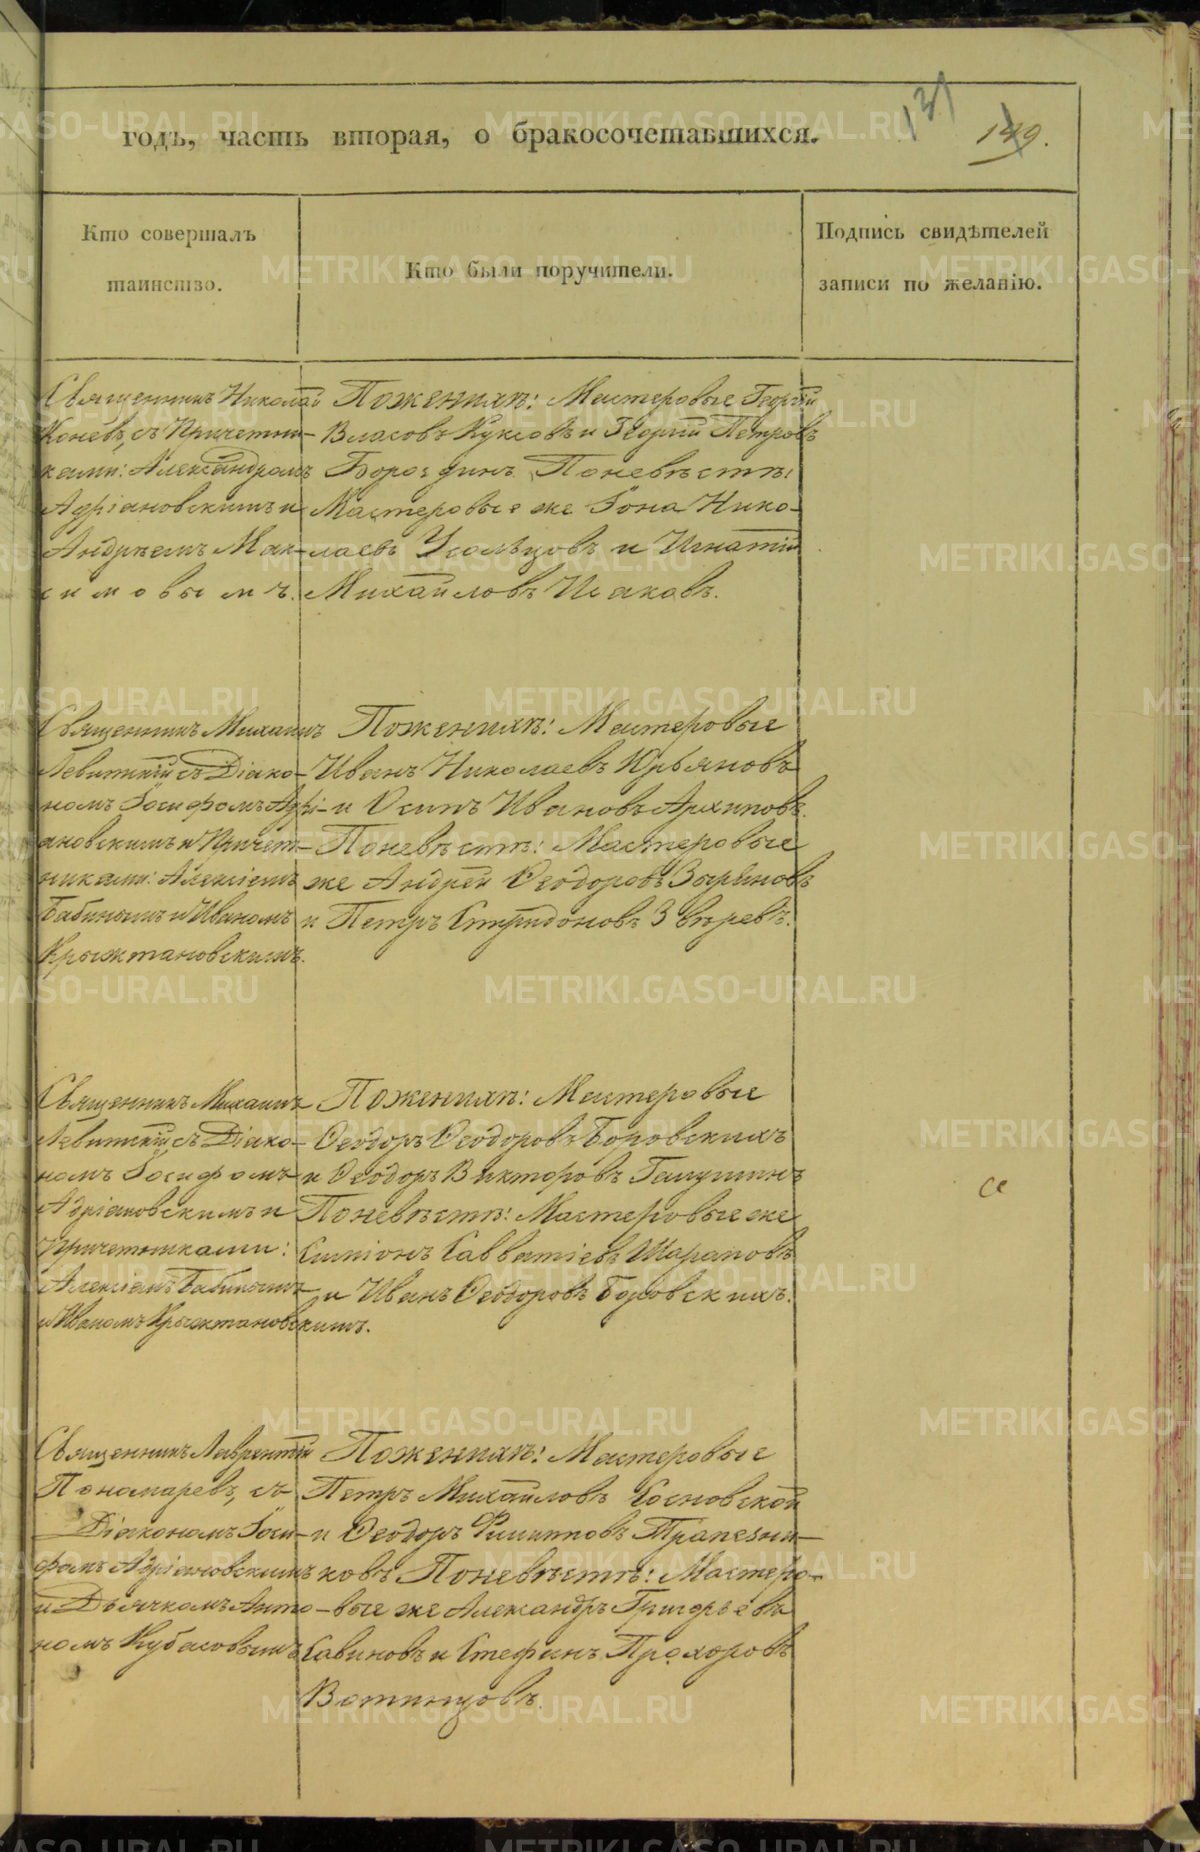 годъ, часть вторая, о бракосочетавшихся.
131
149.
Кто совершалъ
таинство.
Кто были поручители.
Подпись свидѣтелей
записи по желанію.
Священникъ Николай
Коневъ, съ Причетни-
ками: Александромъ
Адріановскимъ и
Андреемъ Мак-
симовымъ.
По женихѣ: Мастеровые Георгій
Власовъ Куксовъ и Георгій Петровъ
Бороздинъ. По невѣстѣ:
Мастеровые же Іона Нико-
лаевъ Усольцовъ и Игнатій
Михайловъ Исаковъ.
Священникъ Михаилъ
Левитскій съ Діако-
номъ Іосифомъ Адрі-
ановскимъ и Причет-
никами: Алексіемъ
Бабинымъ и Иваномъ
Крыжтановскимъ.
По женихѣ: Мастеровые
Иванъ Николаевъ Юрьяновъ
и Осипъ Ивановъ Архиповъ.
По невѣстѣ: Мастеровые
же Андрей Ѳеодоровъ Зыряновъ
и Петръ Спиридоновъ Звѣревъ.
Священникъ Михаилъ
Левитскій, съ Діако-
номъ Іосифомъ
Адріановскимъ и
Причетниками:
Алексіемъ Бабинымъ
и Иваномъ Крыжтановскимъ.
По женихѣ: Мастеровые
Ѳеодоръ Ѳеодоровъ Боровскихъ
и Ѳеодоръ Викторовъ Галушинъ
По невѣстѣ: Мастеровые же
Симіонъ Савватіевъ Шараповъ
и Иванъ Ѳеодоровъ Боровскихъ.
Священникъ Лаврентій
Пономаревъ, съ
Діакономъ Іоси-
фомъ Адріановскимъ
и Дьячкомъ Анто-
номъ Кубасовымъ
По женихѣ: Мастеровые
Петръ Михайловъ Сосновской
и Ѳеодоръ Филипповъ Трапезни-
ковъ По невѣстѣ: Мастеро-
вые же Александръ Григорьевъ
Савиновъ и Стефанъ Прохоровъ
Вотинцовъ.